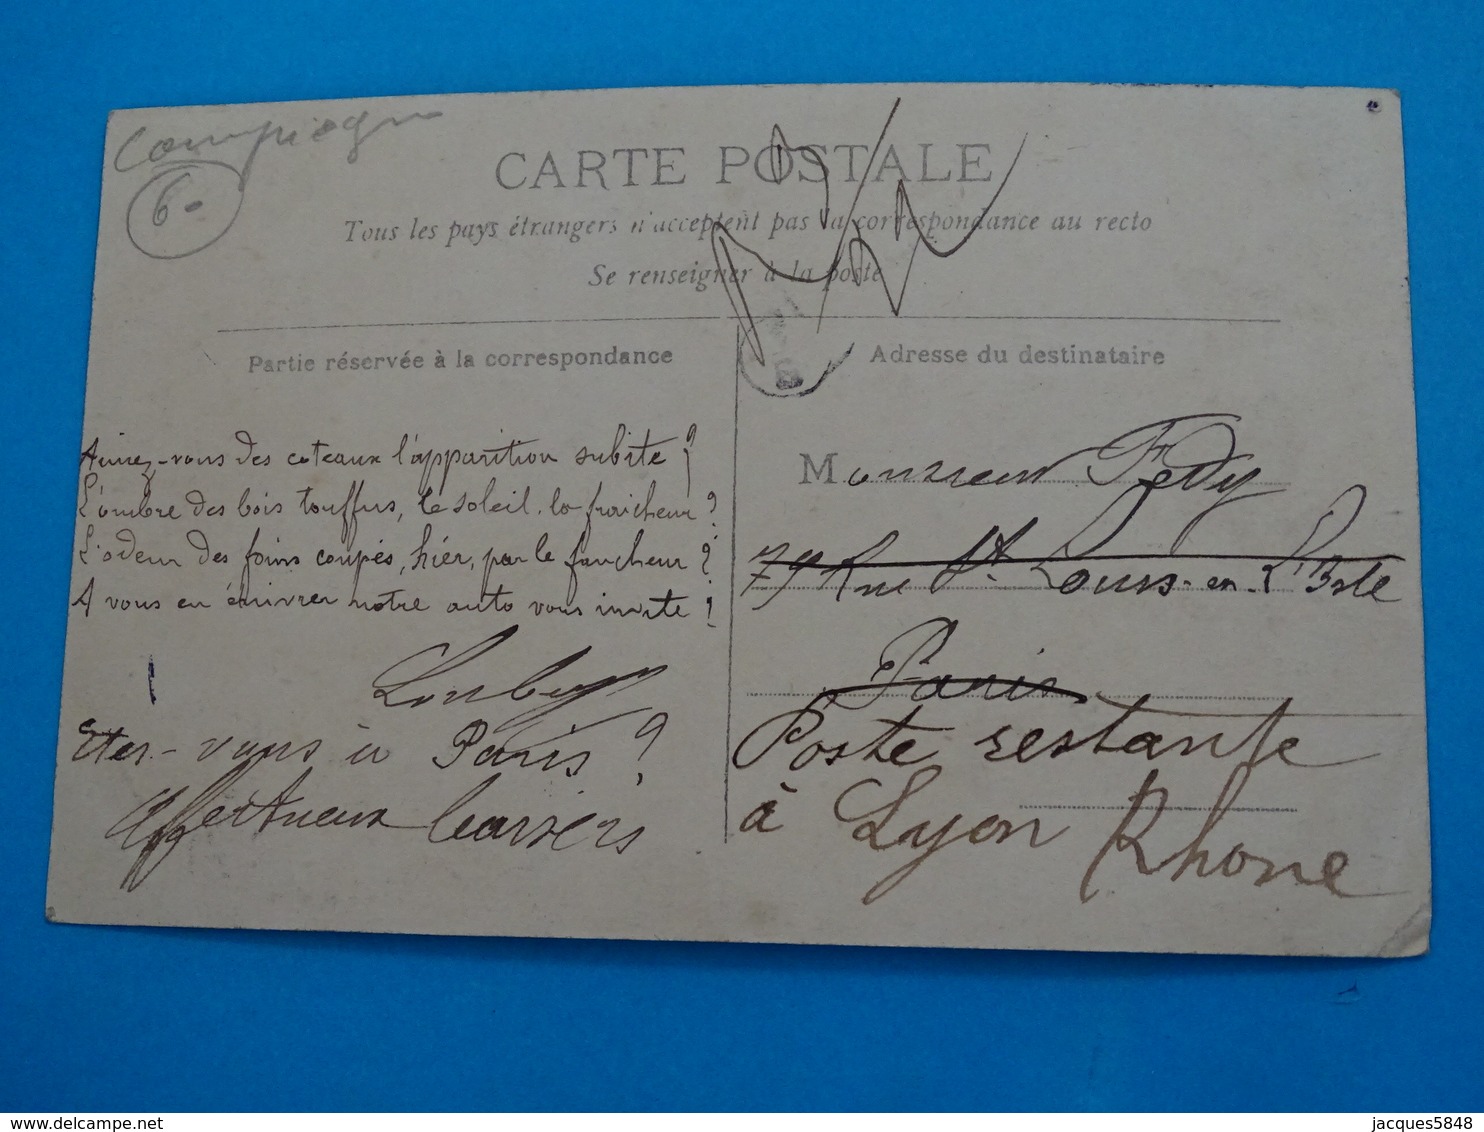 Compiegn
6-
CARTE POSTALE
Tous les pays étrangers n'acceptent pas la correspondance au recto
Se renseigner à la poste
Partie réservée à la correspondance
Aimez-vous des coteaux l'apparition subite ?
L'ombre des bois touffus, le soleil, la fraicheur ?
L'odeur des foins coupés, hier, par le faucheur ?
A vous en enivrer notre auto vous invite !
Etes-vous à Paris ?
Affectueux baisers
Adresse du destinataire
Monsieur Fédy
79 Rue St. Louis-en-L'Isle
Paris
Poste restante
à Lyon Rhone
jacques5848